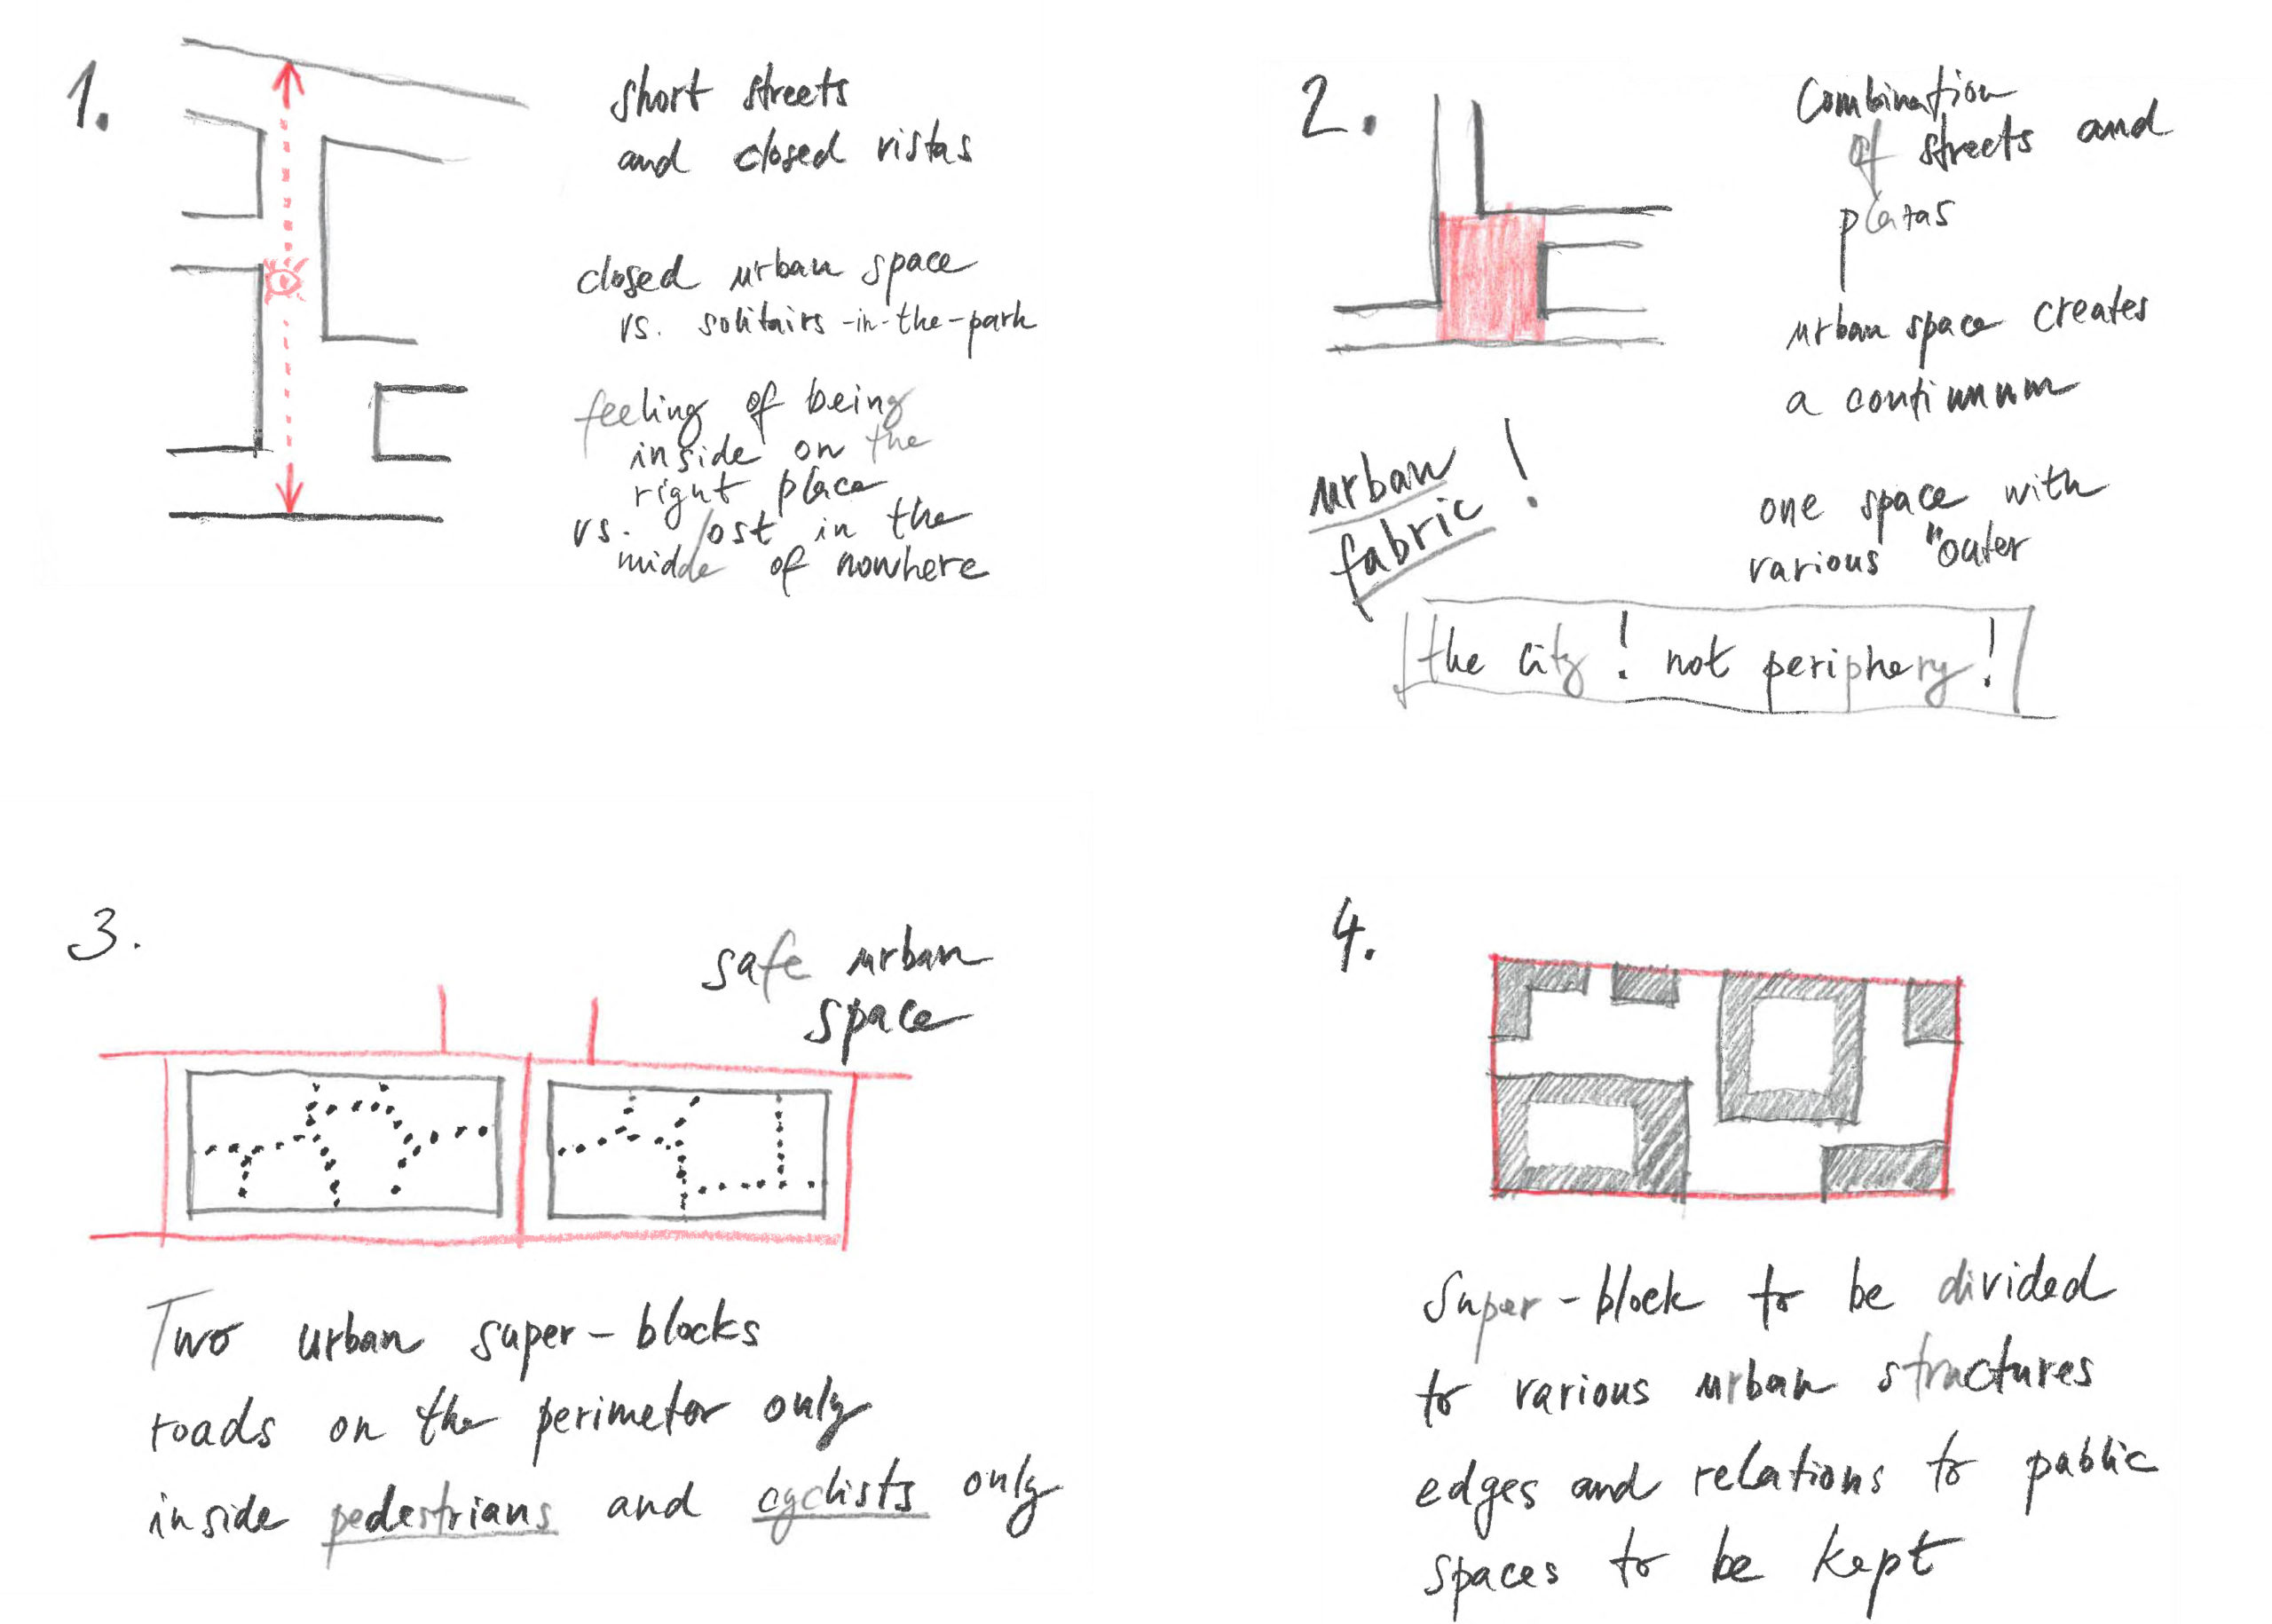 1.
short streets
and closed vistas
closed urban space
vs. solitairs-in-the-park
feeling of being
inside on the
right place
vs. lost in the
middle of nowhere
2.
Combination
of streets and
plazas
urban space creates
a continuum
one space with
various "outer
urban
fabric !
the city ! not periphery !
3.
safe urban
space
Two urban super-blocks
roads on the perimeter only
inside pedestrians and cyclists only
4.
Super-block to be divided
to various urban structures
edges and relations to public
spaces to be kept